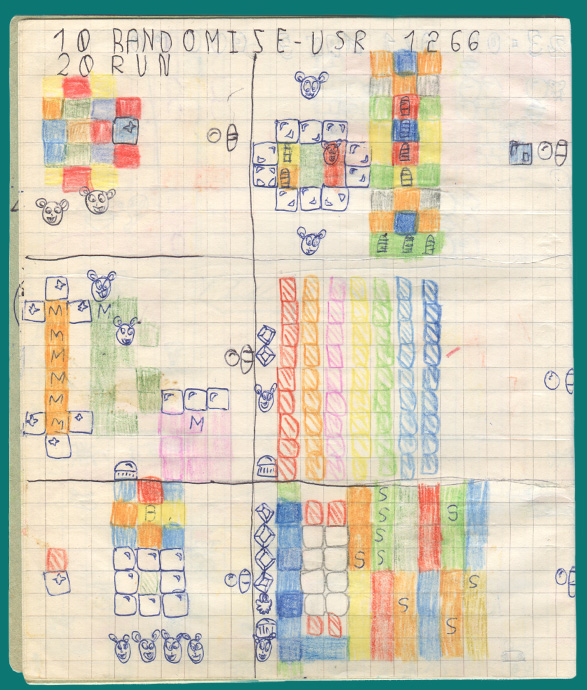 10 RANDOMISE-USR 1266
20 RUN
M M
M
M
M
M
M M
S
S S
S
S S
S
S
S